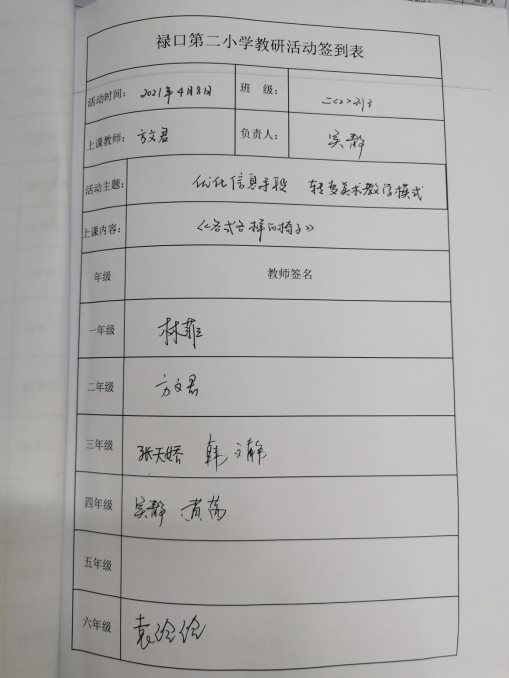 负责人
禄口第二小学教研活动签到表
活动时间： 2021年4月8日 班 级： 二（2）
上课教师： 方文君 负责人： 吴静
活动主题： 优化信息手段 转变美术教学模式
上课内容： 《各式各样的椅子》
年级 教师签名
一年级 林菲
二年级 方文君
三年级 张天娇 韩文静
四年级 吴静 黄荡
五年级
六年级 袁伶伶